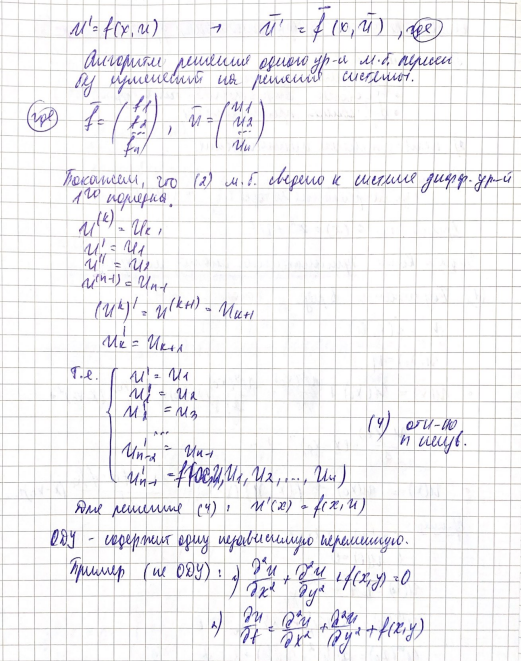 u' = f(x, u) → ū' = f̄(x, ū), где
Алгоритм решения одного ур-я м.б. перенесён
без изменений на решения системы.
где f̄ = (f1 f2 ... fn), ū = (u1 u2 ... un)
Покажем, что (2) м.б. сведено к системе дифф. ур-й
1го порядка.
u^(k) = uk,
u' = u1
u'' = u2
u^(n-1) = un-1
(u^k)' = u^(k+1) = uk+1
uk' = uk+1
Т.е. { u' = u1
u1' = u2
u2' = u3
...
u'n-2 = un-1
u'n-1 = f(x, u, u1, u2, ..., un)
(4) отн-но
n неизв.
Для решения (4): u'(x) = f(x, u)
ОДУ - содержит одну независимую переменную.
Пример (не ОДУ): 1) ∂²u/∂x² + ∂²u/∂y² + f(x,y) = 0
2) ∂u/∂t = ∂²u/∂x² + ∂²u/∂y² + f(x,y)